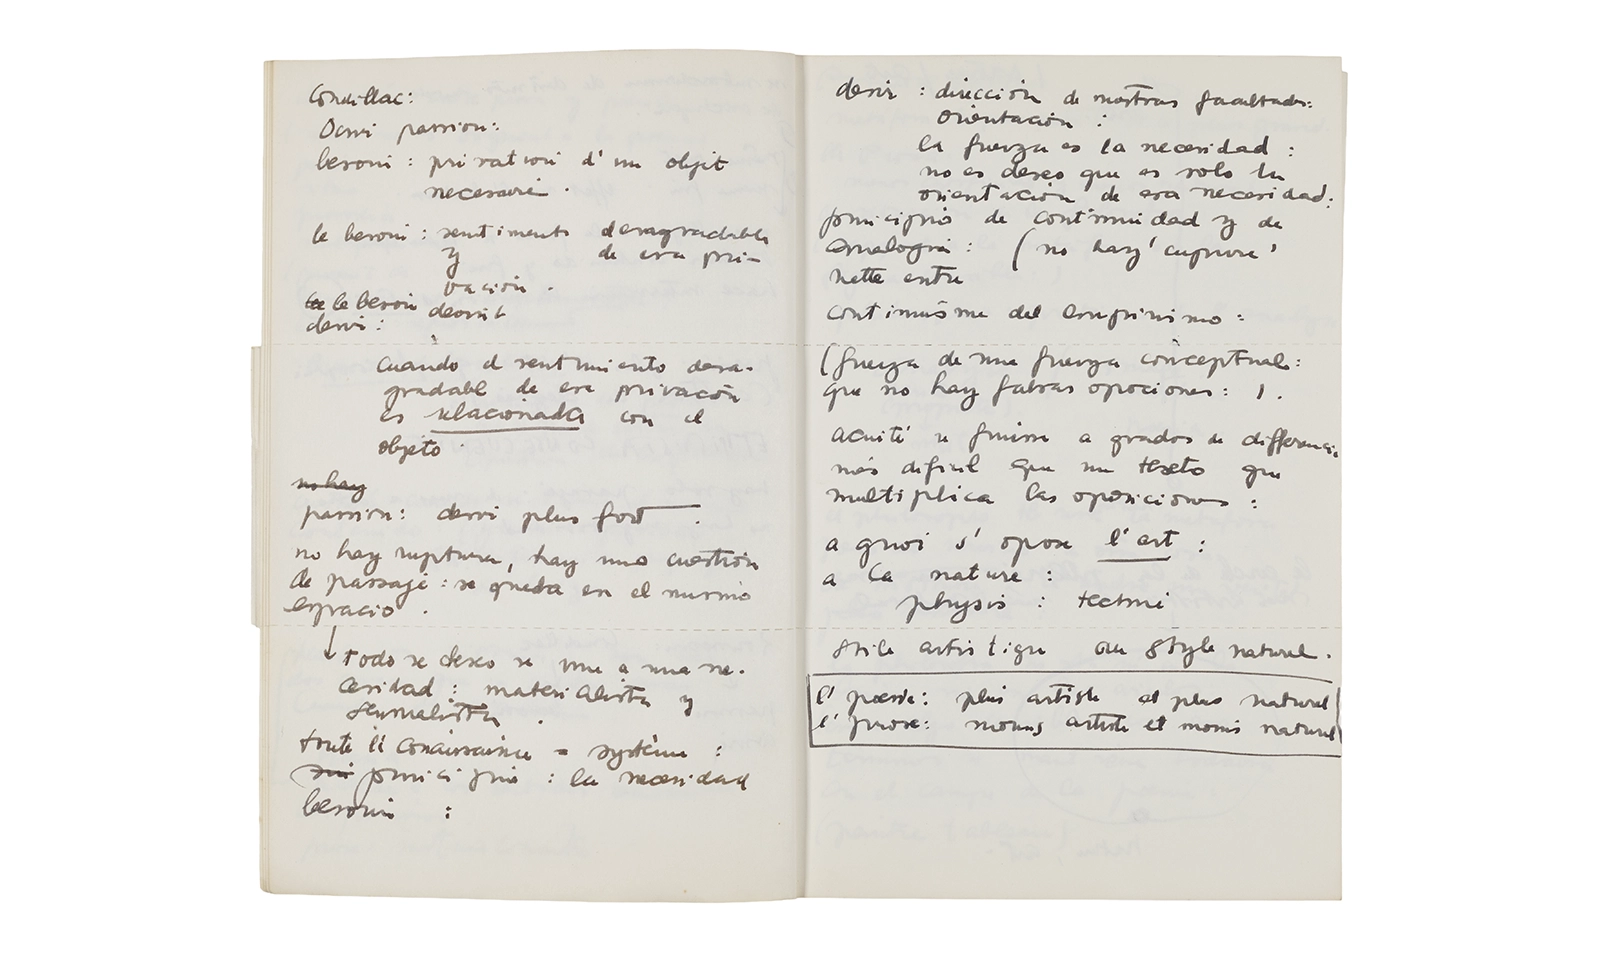 Condillac:
Desir passion:
besoin : privation d'un objet
necesaire.
le besoin : sentimento desagradable
y de esa pri-
vación.
le besoin devient
desir :
Cuando el sentimiento desa-
gradable de ese privación
es relacionada con el
objeto
no hay
passion: desir plus fort.
no hay ruptura, hay una cuestión
de passage : se queda en el mismo
espacio.
↓ todo se deseo se une a una ne-
cesidad : materialista y
sensualista.
toute la conaissaince = système :
principio : la necesidad
besoin :
desir : dirección de nostras facultades:
orientación :
la fuerza es la necesidad :
no es deseo que es solo la
orientación de esa necesidad:
principio de continuidad y de
analogia : (no hay 'cupure'
nette entre
continuisme del empirismo :
(fuerza de une fuerza conceptual:
que no hay falsas opociones: ).
acuité se finise a grados de differencia
más dificil que un texto que
multiplica las oposiciones :
a quoi s'opose l'art :
a la nature :
physis : techni
stile artistique ou style natural.
l'poesie: plus artiste et plus natural
l'prose: moins artiste et moins natural